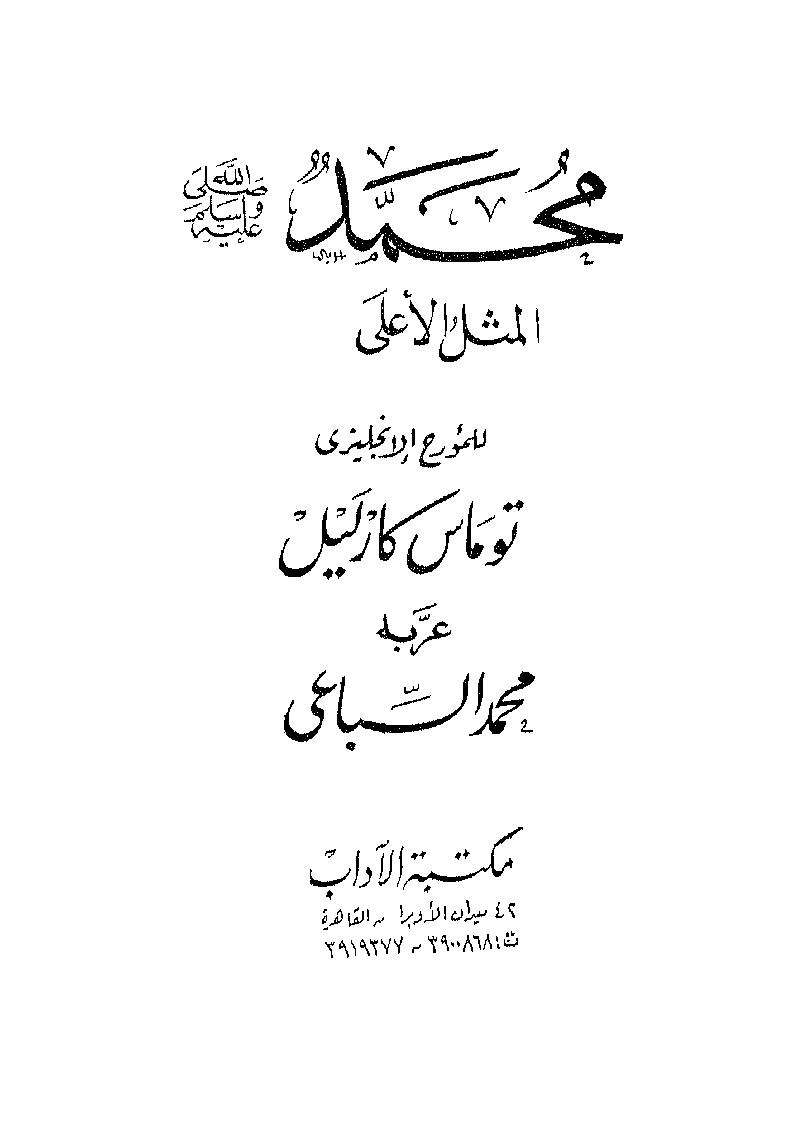 مُحَمَّدٌ صَلَّى اللهُ عَلَيْهِ وَسَلَّمَ
المثلُ الأعلَى
للمؤرخ الإنجليزى
تومَاس كارْلَيْل
عرَّبه
محمد السِّباعى
مكتبة الآداب
٤٢ ميدان الأوبرا - القاهرة
ت: ٣٩٠٠٨٦٨ - ٣٩١٩٣٧٧